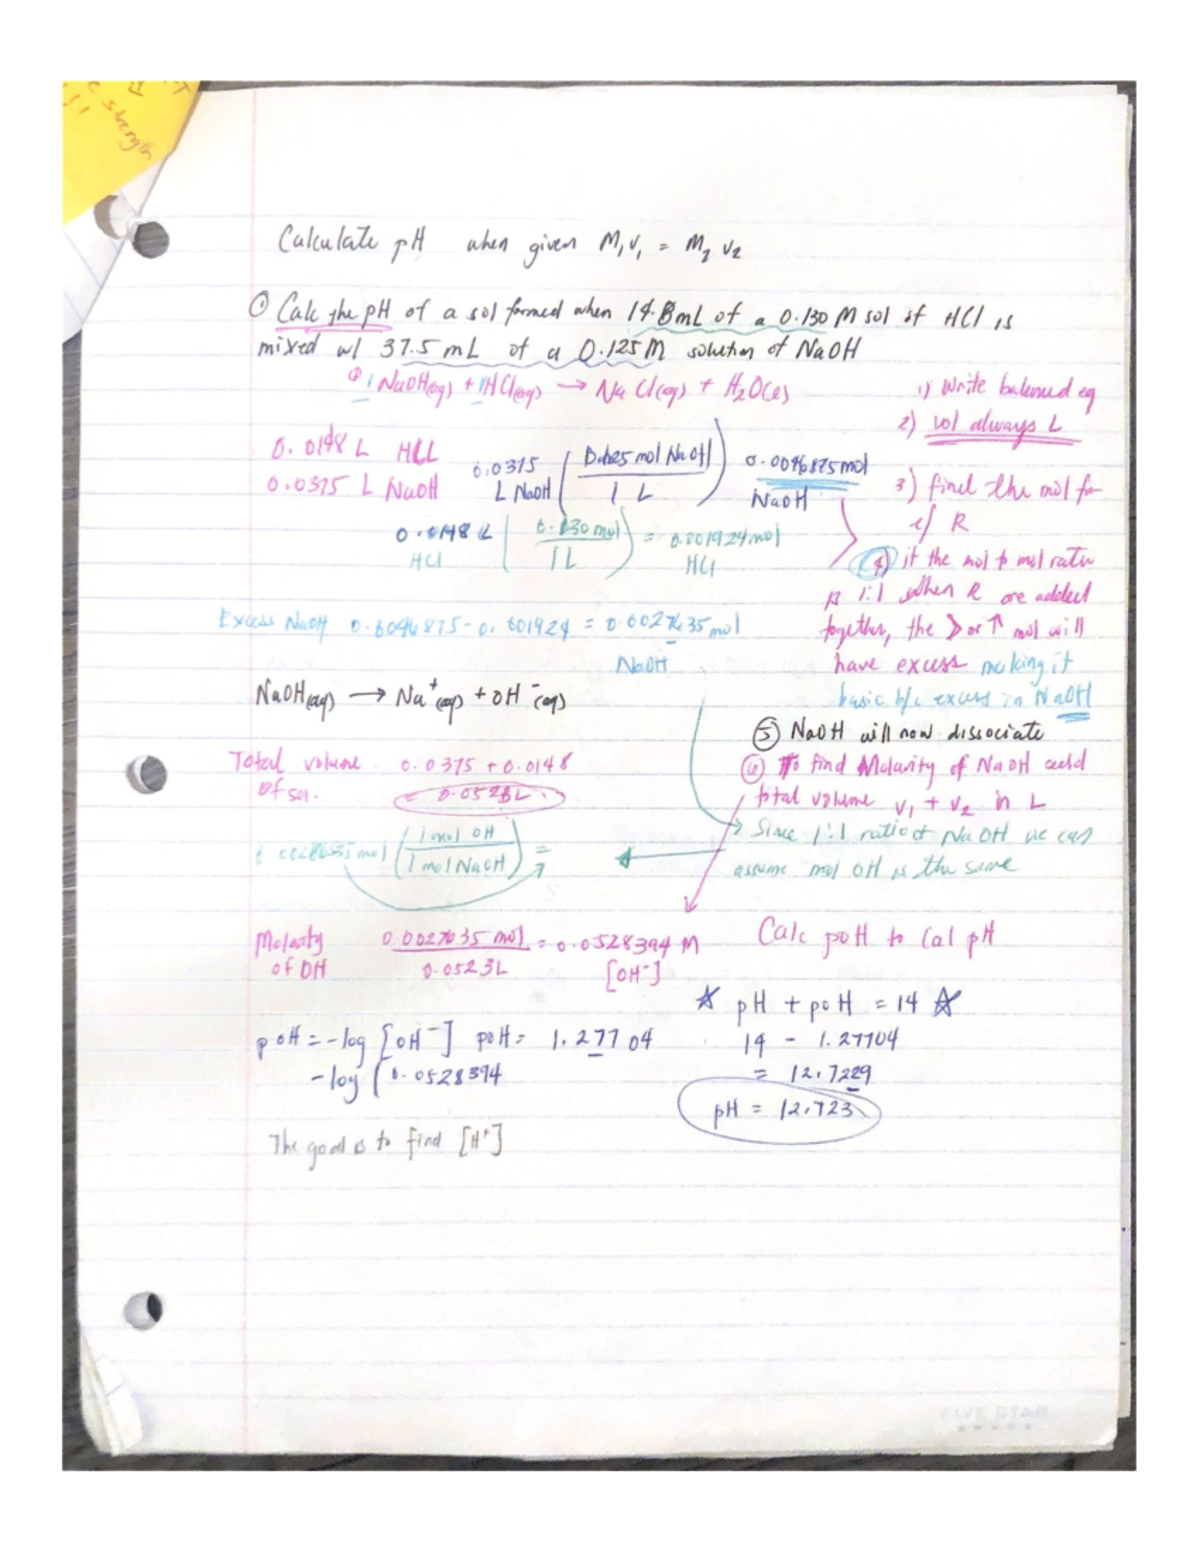 strength
Calculate pH when given M₁V₁ = M₂ V₂
① Calc the pH of a sol formed when 14.8mL of a 0.130 M sol of HCl is
mixed w/ 37.5 mL of a 0.125M solution of NaOH
① 1 NaOH(aq) + 1HCl(aq) → NaCl(aq) + H₂O(l)
1) Write balanced eq
2) vol always L
0.0148 L HCl
0.0375 L NaOH
0.0375 L NaOH (0.125 mol NaOH / 1 L) 0.0046875 mol NaOH
3) find the mol for
e/ R
0.0148 L HCl (0.130 mol / 1L) = 0.001924 mol HCl
④ if the mol to mol ratio
is 1:1 when R are added
together, the > or ↑ mol will
have excess making it
basic b/c excess in NaOH
Excess NaOH 0.0046875 - 0.001924 = 0.0027635 mol
NaOH
NaOH(aq) → Na⁺(aq) + OH⁻(aq)
⑤ NaOH will now dissociate
⑥ To find Molarity of NaOH add
total volume V₁ + V₂ in L
→ Since 1:1 ratio of NaOH we can
assume mol OH is the same
Total volume 0.0375 + 0.0148
of sol. = 0.0523L
mol (1 mol OH / 1 mol NaOH) =
Molarity of OH 0.0027635 mol / 0.0523L = 0.0528394 M
[OH⁻]
Calc pOH to Cal pH
☆ pH + pOH = 14 ☆
14 - 1.27704
= 12.7229
pH = 12.723
pOH = -log [OH⁻] pOH = 1.27704
-log (0.0528394
The goal is to find [H⁺]
FIVE STAR